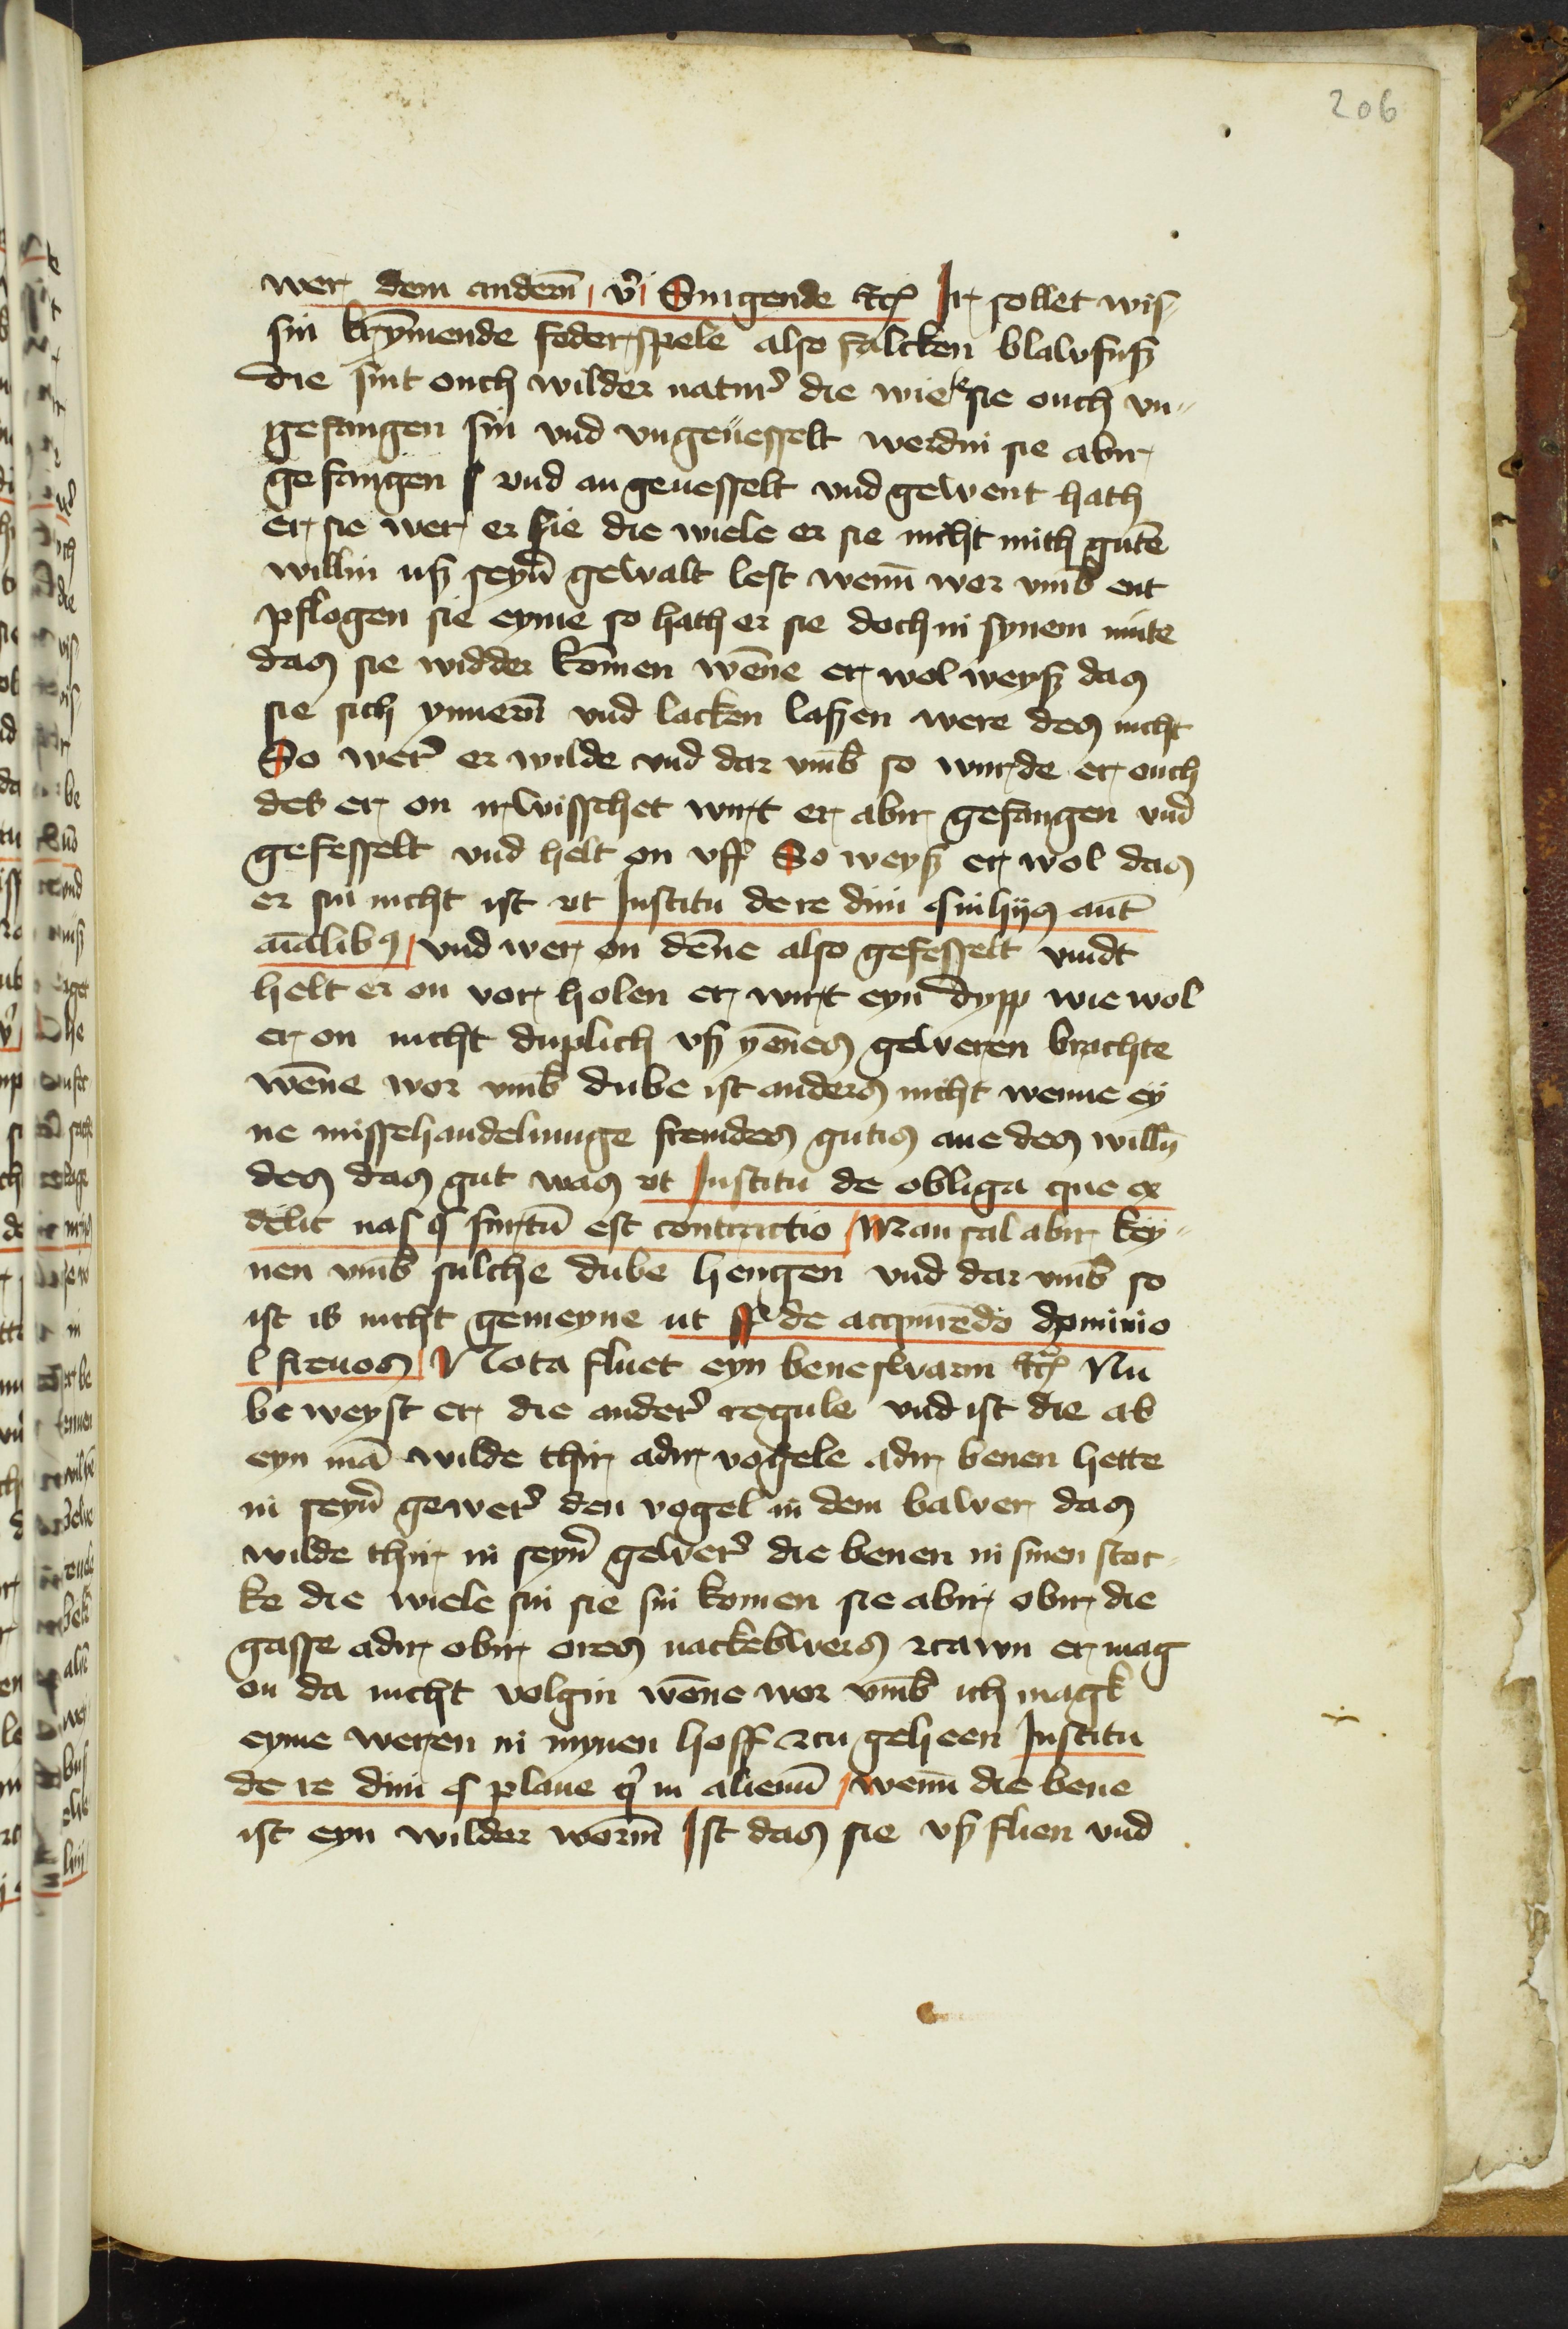 206
wer dem andern̄ v̊ Singende ꝛc̄ Ir sollet wis-
sin krȳmende federspele also falcken blawfusz
die sint ouch wilder natur̛ die wile sie ouch vn-
gefangen sin vnd vngeuesselt werdin sie abir
gefangen vnd an geuesselt vnd gewent hath
er sie wer er sie die wiele er sie nicht mith gutē
willin usz seyn̄ gewalt lest wenn̄ wor vmb̄ ent
pflogen sie eyme so hath er sie doch in synem mute
das sie widder kōmen wēne er wol weysz das
sie sich ynnern̄ vnd lacken laszen were des nicht
So wer̛ er wilde vnd dar vmb̄ so wurde er ouch
des er on irwisschet wirt er abir gefangen vnd
gefesselt vnd helt on vff So weysz er wol das
er sin nicht ist vt Institu de re diui § in hijs aut̄
aīalibꝫ vnd wer on dēne also gefesselt vindt
helt er on vor holen er wirt eyn dypp wie wol
er on nicht duplich vsz yēnes geweren brachte
wēne wor vmb̄ dube ist anders nicht wenne ey
ne missehandelunge fremdes gutis ane des willn̄
des das gut was vt Institu de obliga que ex
delic nas § furtū est contrectio Man sal abir key-
nen vmb̄ sulche dube hengen vnd dar vmb̄ so
ist is nicht gemeyne ut ff de acquirēdo dominio
l seruos Nota fluet eyn beneswarm ꝛc̄ Nu
be weyst er die ander̛ regule vnd ist die ab
eyn mā wilde thir adir vogele adir benen hette
in seyn̄ gewer̛ den vogel in dem bawer das
wilde thir in seyn̄ gewer̛ die benen in sinen stoc-
ke die wiele sin sie sin komen sie abir obir die
gasse adir obir ores nackebwers zcawn er mag
on da nicht volgin wēne wor vmb̄ ich magk
eyme weren in mynen hoff zcu geheen Institu
de re diui § plane q̊ in alienū wenn̄ die bene
ist eyn wilder worm̄ Ist das sie vsz flien vnd